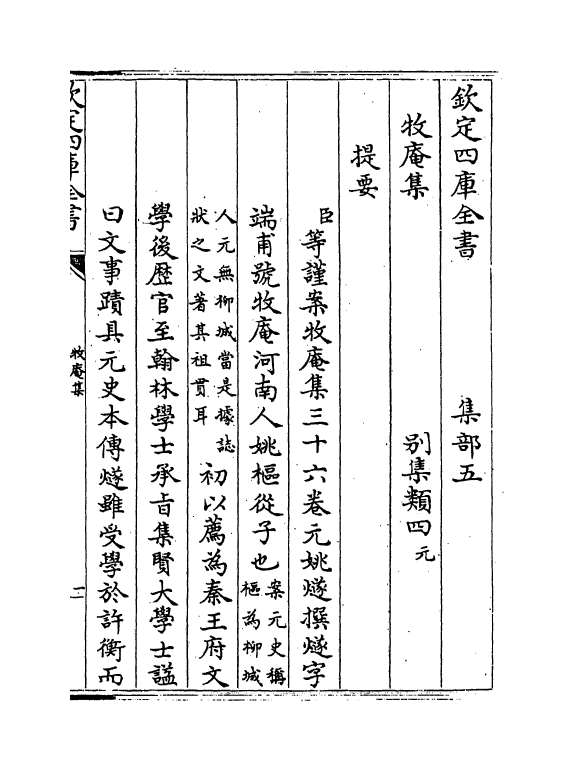 欽定四庫全書 集部五
牧庵集 别集類四元
提要
臣等謹案牧庵集三十六卷元姚燧撰燧字
端甫號牧庵河南人姚樞從子也案元史稱樞為柳城
人元無柳城當是據誌狀之文著其祖貫耳初以薦為秦王府文
學後歴官至翰林學士承㫖集賢大學士諡
曰文事蹟具元史本傳燧雖受學於許衡而
欽定四庫全書
牧庵集
一